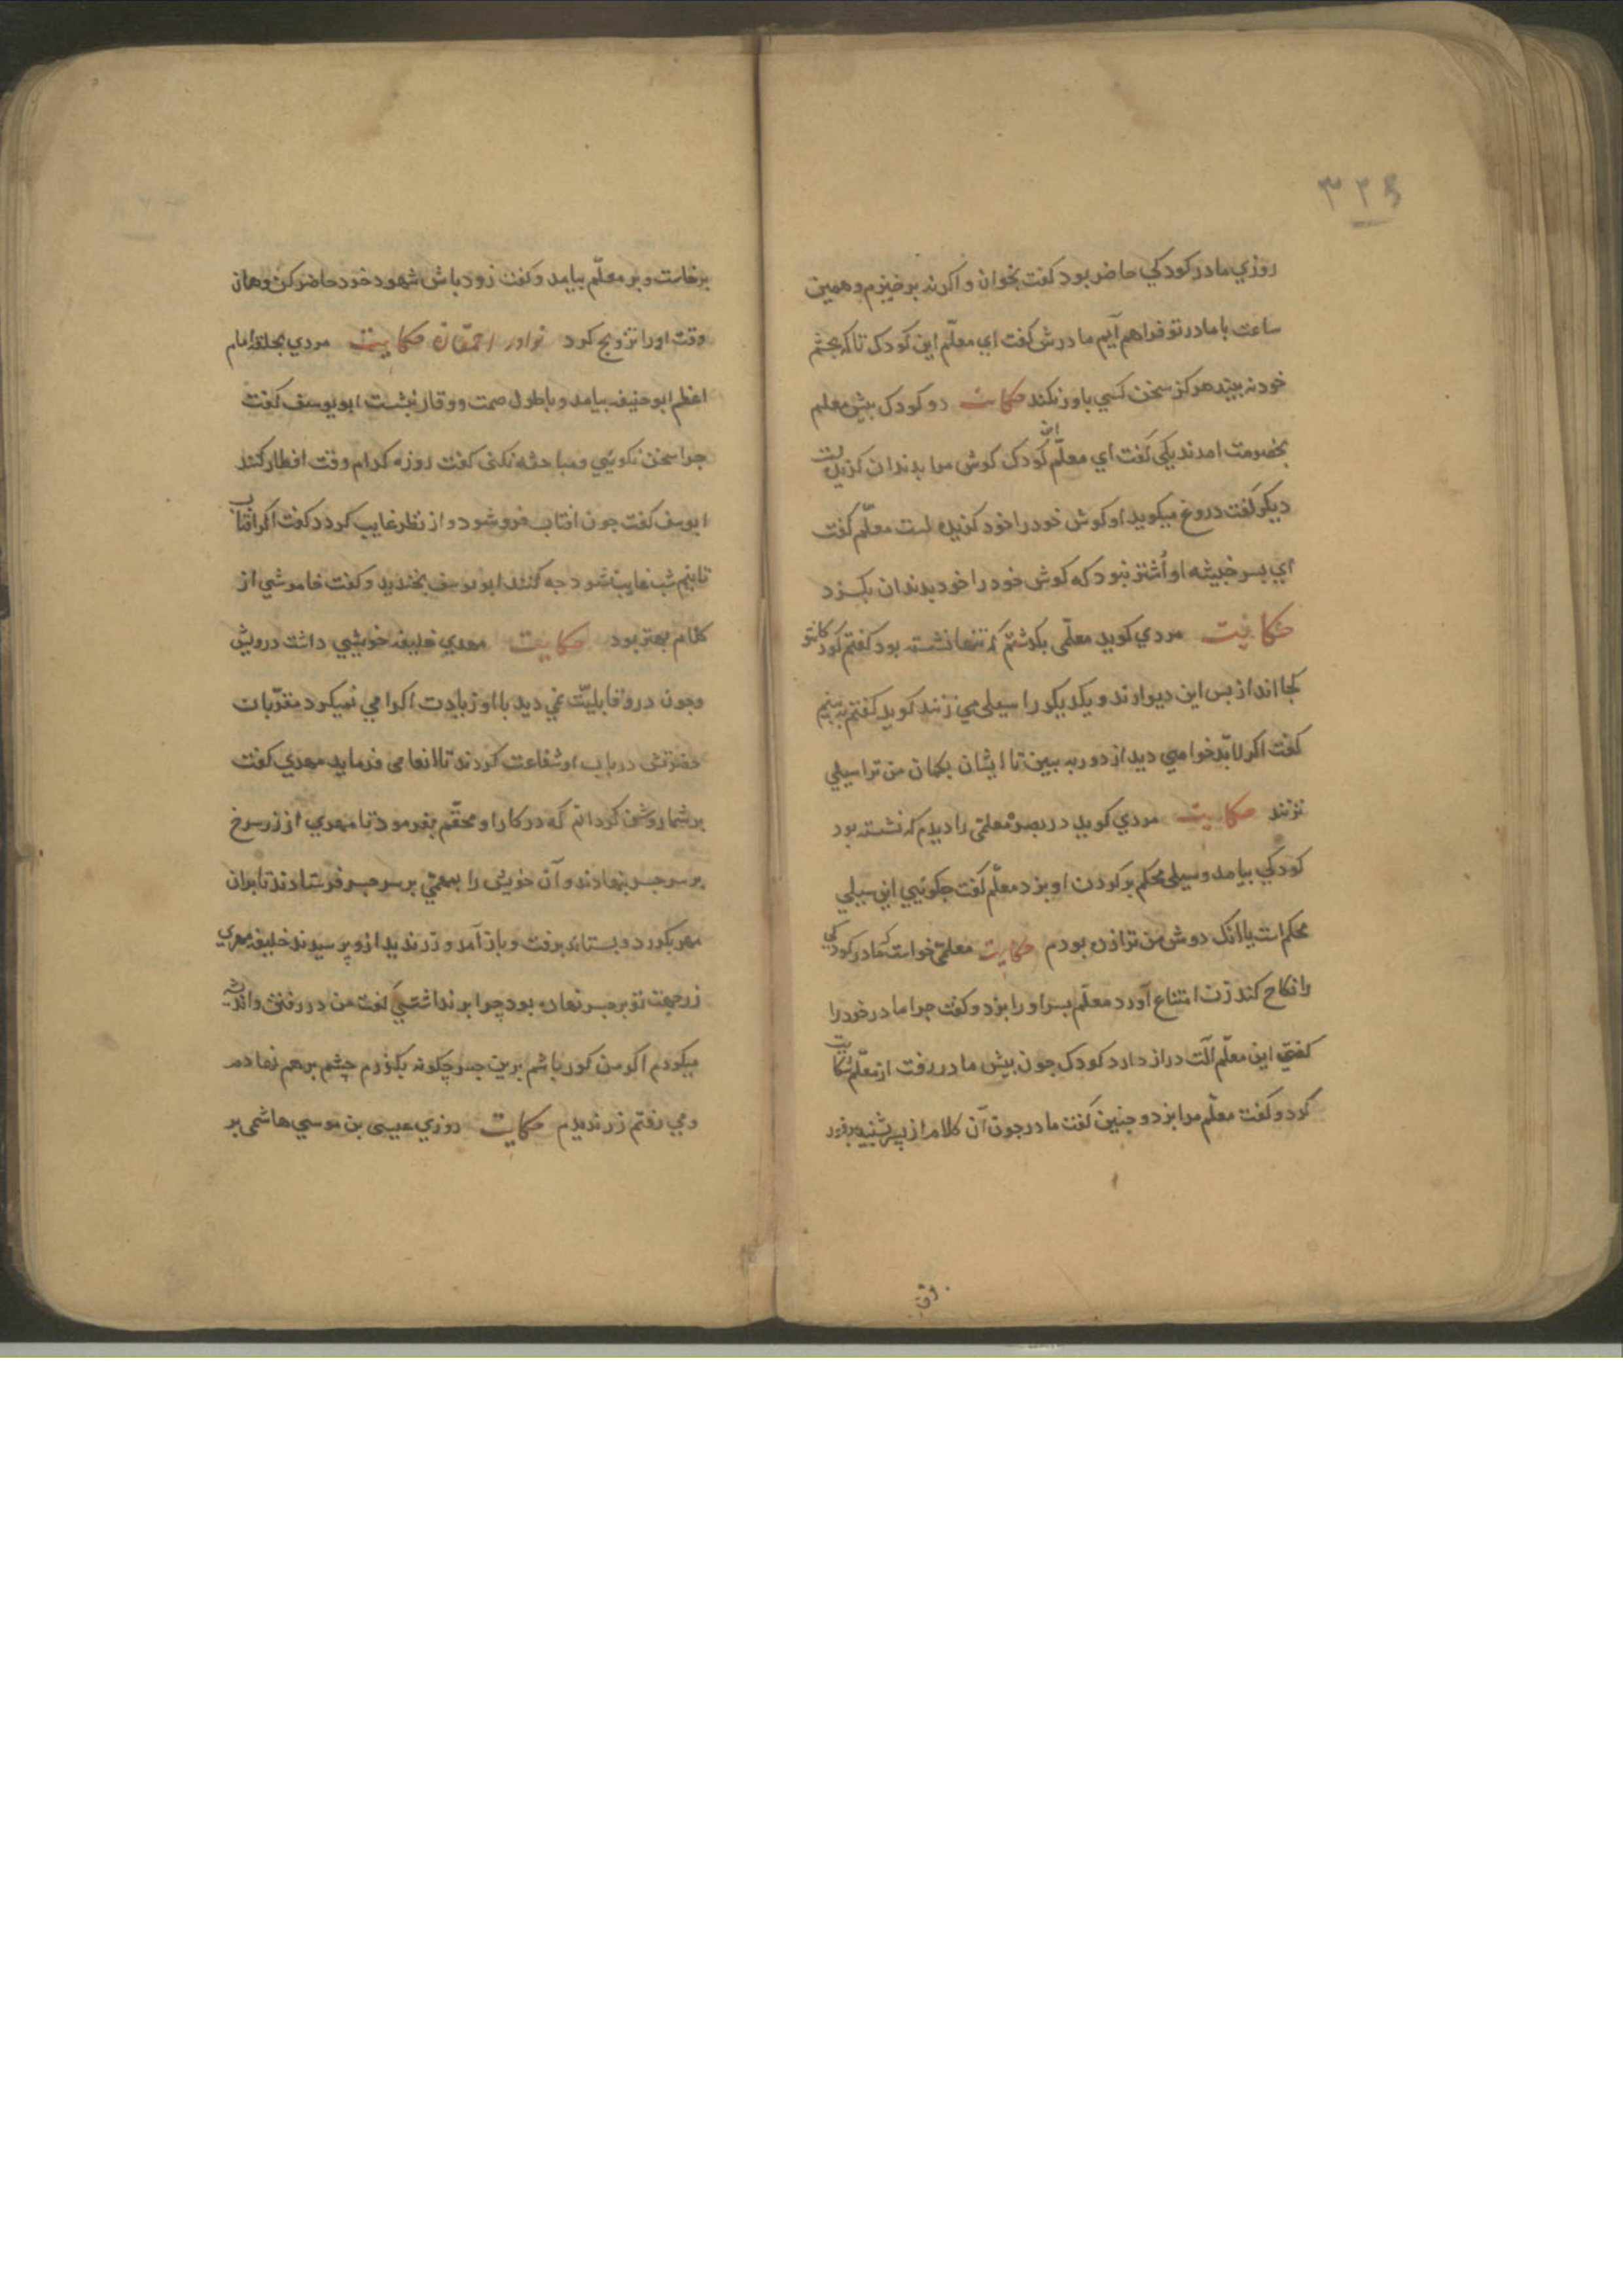 ۳۲۵
روزي مادر كودكي حاضر بود كفت بخوان واكرنه برخيزم وهمين
ساعت با مادر تو فراهم آيم مادرش كفت اي معلّم اين كودك تا كه بچشم
خود نه بيند هركز سخن كسي باور نكند حكايت دو كودك پيش معلم
بخصومت امدند يكي كفت اي معلّم اين كودك كوش مرا بدندان كزيده است
ديكر كفت دروغ ميكويد او كوش خود را خود كزيده است معلّم كفت
اي پسر خبيثه او أشتر نبود كه كوش خود را خود بدندان بكزد
حكايت مردي كويد معلّمى بكذشتم كه تنها نشسته بود كفتم كودكان تو
كجا اند از پس اين ديوارند ويكديكر را سيلى مي زنند كويد كفتم به بينم
كفت اكر لابّد خواهي ديد از دور به بين تا ايشان بكمان من ترا سيلي
نزنند حكايت مردي كويد در بصره معلّمى را ديدم كه نشسته بود
كودكي بيامد وسيلى محكم بر كردن او بزد معلّم كفت چكوئيي اين سيلي
محكم است يا انك دوش من ترا زده بودم حكايت معلّمى خواست كه مادر كودكي
را نكاح كند زن امتناع آورد معلّم پسر او را بزد وكفت چرا مادر خود را
كفتي اين معلّم آلت دراز دارد كودك چون پيش مادر رفت از معلّم شكايت
كرد وكفت معلّم مرا بزد وچنين كفت مادر چون آن كلام از پسر شنيد برفور
برخاست وبر معلّم بيامد وكفت زود باش شهود خود حاضر كن وهمان
وقت او را تزويج كرد نوادر احمقان حكايت مردي بحلقهٔ امام
اعظم ابو حنيفه بيامد وبا طول صمت ووقار بنشست ابو يوسف كفت
چرا سخن نكويئي ومباحثه نكنى كفت روزه كدام وقت افطار كنند
ابو يوسف كفت چون افتاب فرو شود واز نظر غايب كردد كفت اكر افتاب
تا نيم شب غايب نشود چه كنند ابو يوسف بخنديد وكفت خاموشي از
كلام بهتر بود حكايت مهدي خليفه خويشي داشت درويش
وچون درو قابليّت نمي ديد با او زيادت اكرامي نميكرد مقرّبان
حضرتش در باب او شفاعت كردند تا انعامى فرمايد مهدي كفت
بر شما روشن كردانم كه در كار او محقّم بفرمود تا مهري از زر سرخ
بر سر جسر بنهادند وآن خويش را بمهمّي بر سر جسر فرستادند تا بران
مهر بكذرد وبستاند برفت وباز آمد وزر نديد ازو پرسيدند خليفه مهري
زر جهت تو بر جسر نهاده بود چرا بر نداشتي كفت من در رفتن وانديشه
ميكردم اكر من كور باشم برين جسر چكونه بكذرم چشم برهم نهادم
ومي رفتم زر نديدم حكايت روزي عيسى بن موسي هاشمى بر